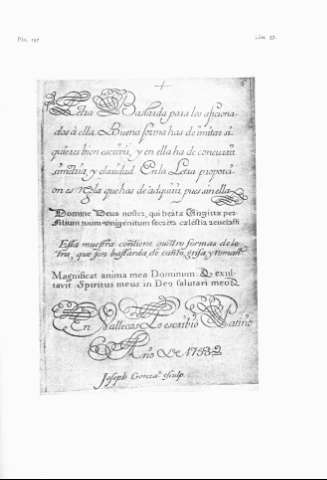 Pág. 197
Lám. 57.
Letra Bastarda para los aficiona-
dos à ella. Buena forma has de imitar si
quieres bien escrivir, y en ella ha de concurrir
simetria, y claridad. En la Letra proporci-
on es Rgla que has de adquirir, pues ain ella
Domine Deus noster, qui beata Birgitta per
filium tuum unigenitum secreta calestia revelasti
Essa muestra contiene quatro formas de le-
tra, que son bastarda, de canto, grifa, y roman
Magnificat anima mea Dominum. & exul-
tavit Spiritus meus in Deo salutari meo
En Vallecas Lo escribio Patiño
Año De 1753
Joseph Gonzaz sculp.